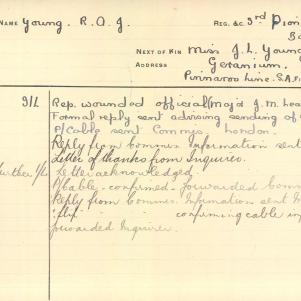 NAME Young. R. O. J. REG. &C 3rd Pion
NEXT OF KIN Miss J. L. Young
ADDRESS Geranium.
Pinnaroo Line. S.A.
9/L Rep. wounded official (Major J. M. Lea
Formal reply sent advising sending of
P/Cable sent Commis London.
Reply from Commis Information sent
Letter of thanks from Inquirer.
further Letter acknowledged.
P/Cable. confirmed. forwarded Comm
Reply from Commis. Information sent
confirming cable in
forwarded Inquirer.